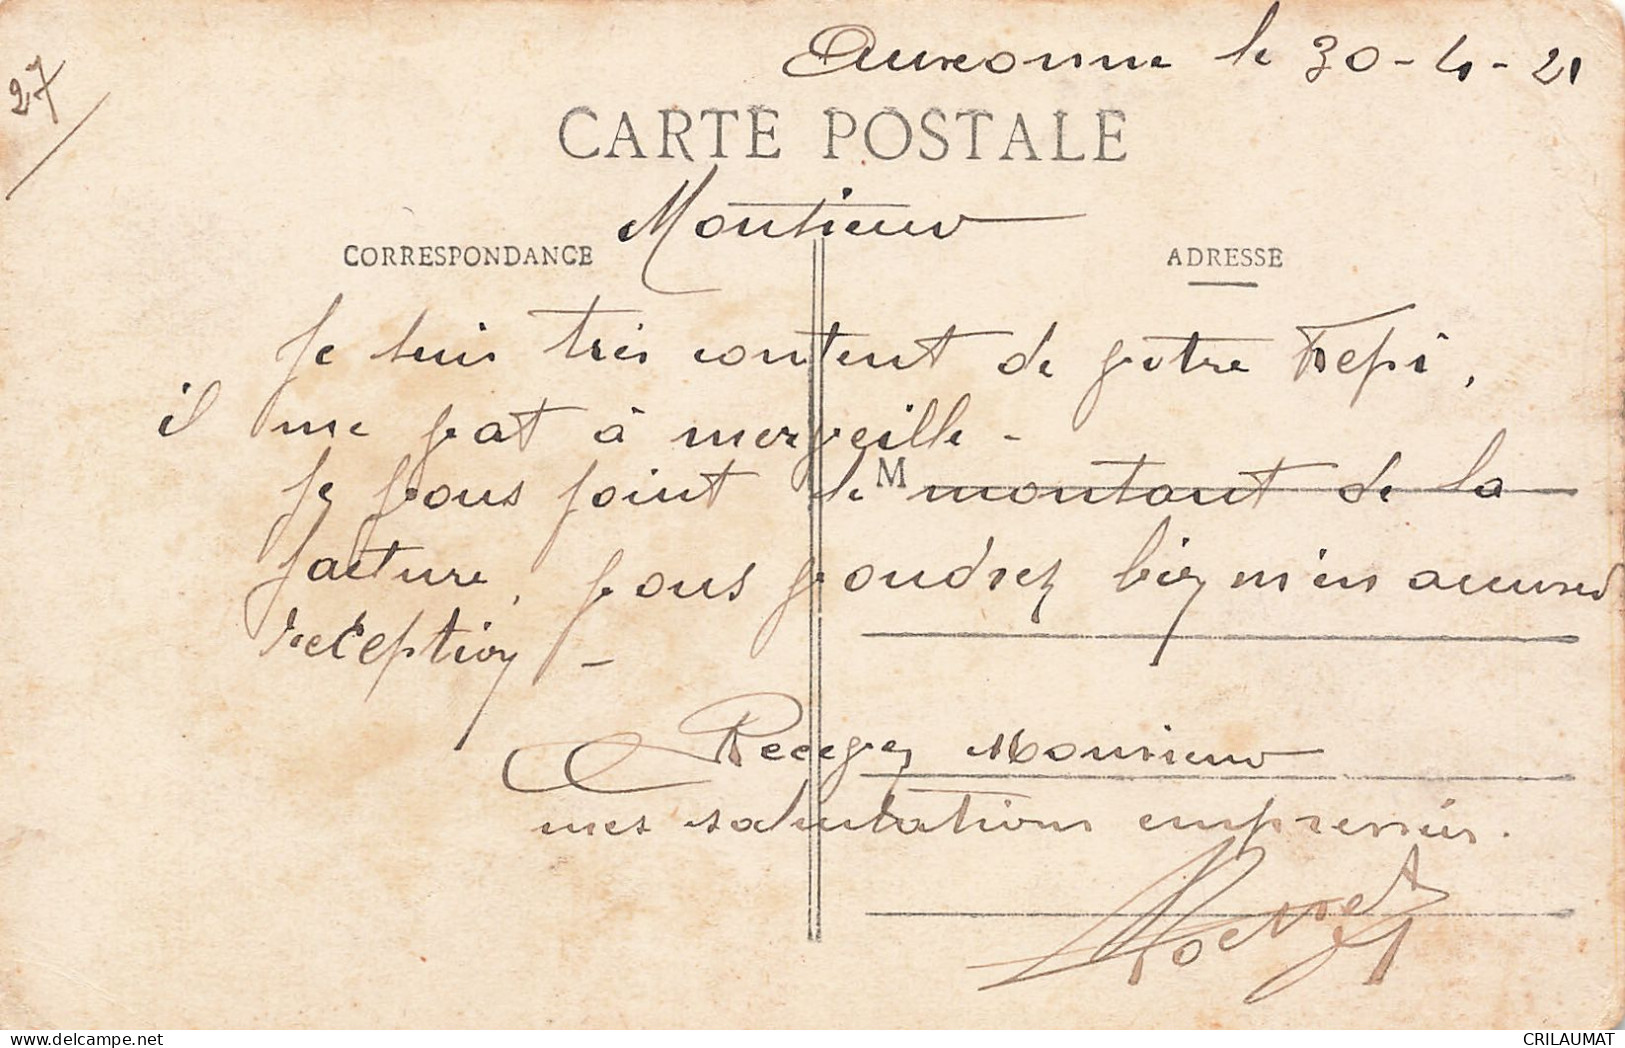 Auxonne le 30-4-21
27
CARTE POSTALE
Monsieur
CORRESPONDANCE
ADRESSE
Je suis très content de votre Kepi,
il me vat à merveille -
Je vous joint le M montant de la
facture, vous voudrez bien m'en accuser
reception -
Recevez Monsieur
mes salutations empressées.
www.delcampe.net
CRILAUMAT